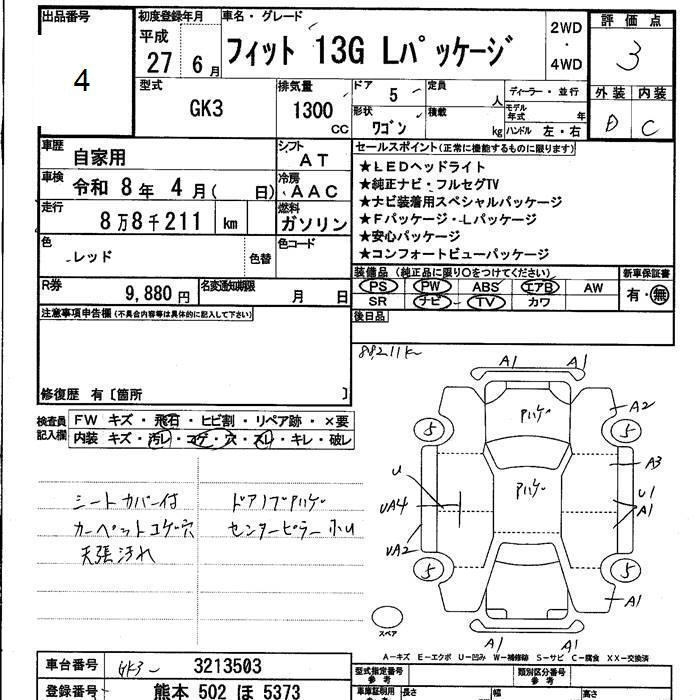 出品番号
4
初度登録年月
平成
27 6月
車名・グレード
フィット 13G Lパッケージ
2WD
・
4WD
評価点
3
外装 内装
D C
型式
GK3
排気量
1300
CC
ドア
5
定員
人
形状
ワゴン
積載
kg
ディーラー・並行
モデル
年式 年
ハンドル 左・右
車歴
自家用
シフト
AT
車検
令和 8年 4月( 日)
冷房
AAC
走行
8万8千211 km
燃料
ガソリン
色
レッド
色替
色コード
R券
9,880円
名変通知期限
月 日
セールスポイント(正常に機能するものに限ります)
★LEDヘッドライト
★純正ナビ・フルセグTV
★ナビ装着用スペシャルパッケージ
★Fパッケージ・Lパッケージ
★安心パッケージ
★コンフォートビューパッケージ
装備品(純正品に限り○をつけてください)
PS PW ABS エアB AW
SR ナビ TV カワ
新車保証書
有・無
後日品
注意事項申告欄(不具合内容等は具体的に記入して下さい)
修復歴 有〔箇所 〕
検査員
記入欄
FW キズ・飛石・ヒビ割・リペア跡・×要
内装 キズ・汚レ・コゲ・穴・スレ・キレ・破レ
シートカバー付
カーペットコゲ穴
天張汚れ
ドアノブPハゲ
センターピラー小U
88211K
A1 A1
A2
5 5
Pハゲ
A3
Pハゲ
U
UA4
U1
A1
UA2
5 5
A1
A1 A1
スペア
A－キズ E－エクボ U－凹み W－補修跡 S－サビ C－腐食 XX－交換済
車台番号
GK3- 3213503
登録番号
熊本 502 ほ 5373
型式指定番号
参考
類別区分番号
参考
車庫証明用
参考
長さ 幅 高さ